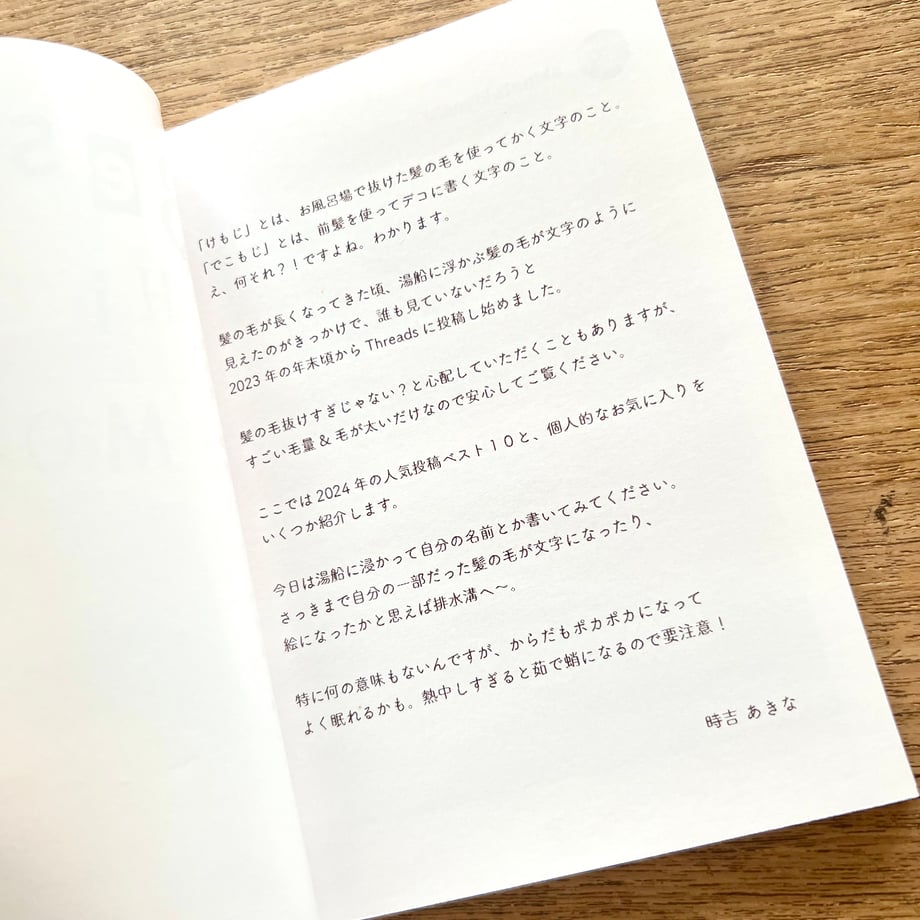 「けもじ」とは、お風呂場で抜けた髪の毛を使ってかく文字のこと。
「でこもじ」とは、前髪を使ってデコに書く文字のこと。
え、何それ？！ですよね。わかります。
髪の毛が長くなってきた頃、湯船に浮かぶ髪の毛が文字のように
見えたのがきっかけで、誰も見ていないだろうと
2023年の年末頃からThreadsに投稿し始めました。
髪の毛抜けすぎじゃない？と心配していただくこともありますが、
すごい毛量&毛が太いだけなので安心してご覧ください。
ここでは2024年の人気投稿ベスト１０と、個人的なお気に入りを
いくつか紹介します。
今日は湯船に浸かって自分の名前とか書いてみてください。
さっきまで自分の一部だった髪の毛が文字になったり、
絵になったかと思えば排水溝へ〜。
特に何の意味もないんですが、からだもポカポカになって
よく眠れるかも。熱中しすぎると茹で蛸になるので要注意！
時吉 あきな